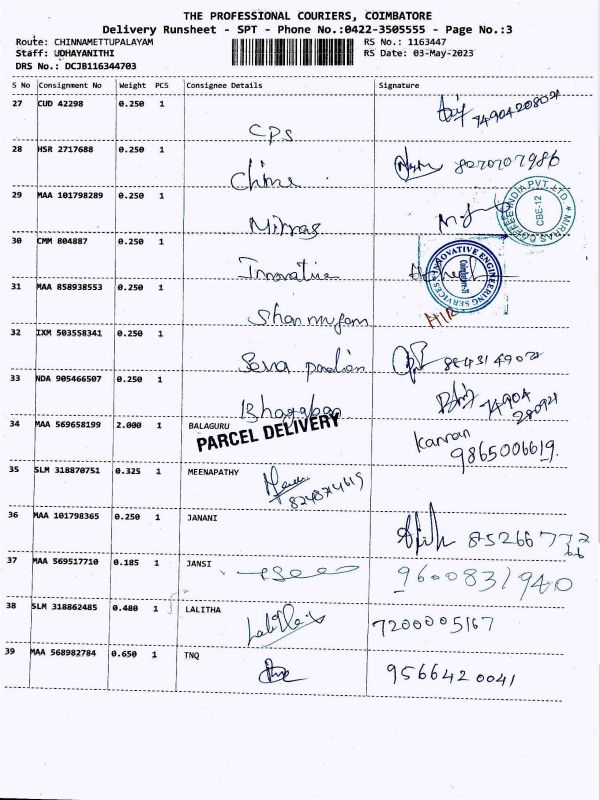 THE PROFESSIONAL COURIERS, COIMBATORE
Delivery Runsheet - SPT - Phone No.:0422-3505555 - Page No.:3
Route: CHINNAMETTUPALAYAM RS No.: 1163447
Staff: UDHAYANITHI RS Date: 03-May-2023
DRS No.: DCJB116344703
S No Consignment No Weight PCS Consignee Details Signature
27 CUD 42298 0.250 1 CPS 7490420802
28 HSR 2717688 0.250 1 Chime 8070707986
29 MAA 101798289 0.250 1 Mirras
MIRRAS COFFEE INDIA PVT. LTD. CBE-12
30 CMM 804887 0.250 1 Innovative
INNOVATIVE ENGINEERING SERVICES
31 MAA 858938553 0.250 1 Shanmugam
32 IXM 503558341 0.250 1
33 NDA 905466507 0.250 1 74904 280921
34 MAA 569658199 2.000 1 BALAGURU Kannan
PARCEL DELIVERY 9865006619.
35 SLM 318870751 0.325 1 MEENAPATHY
36 MAA 101798365 0.250 1 JANANI
37 MAA 569517710 0.185 1 JANSI 9600831940
38 SLM 318862485 0.480 1 LALITHA 7200005167
39 MAA 568982784 0.650 1 TNQ 9566420041